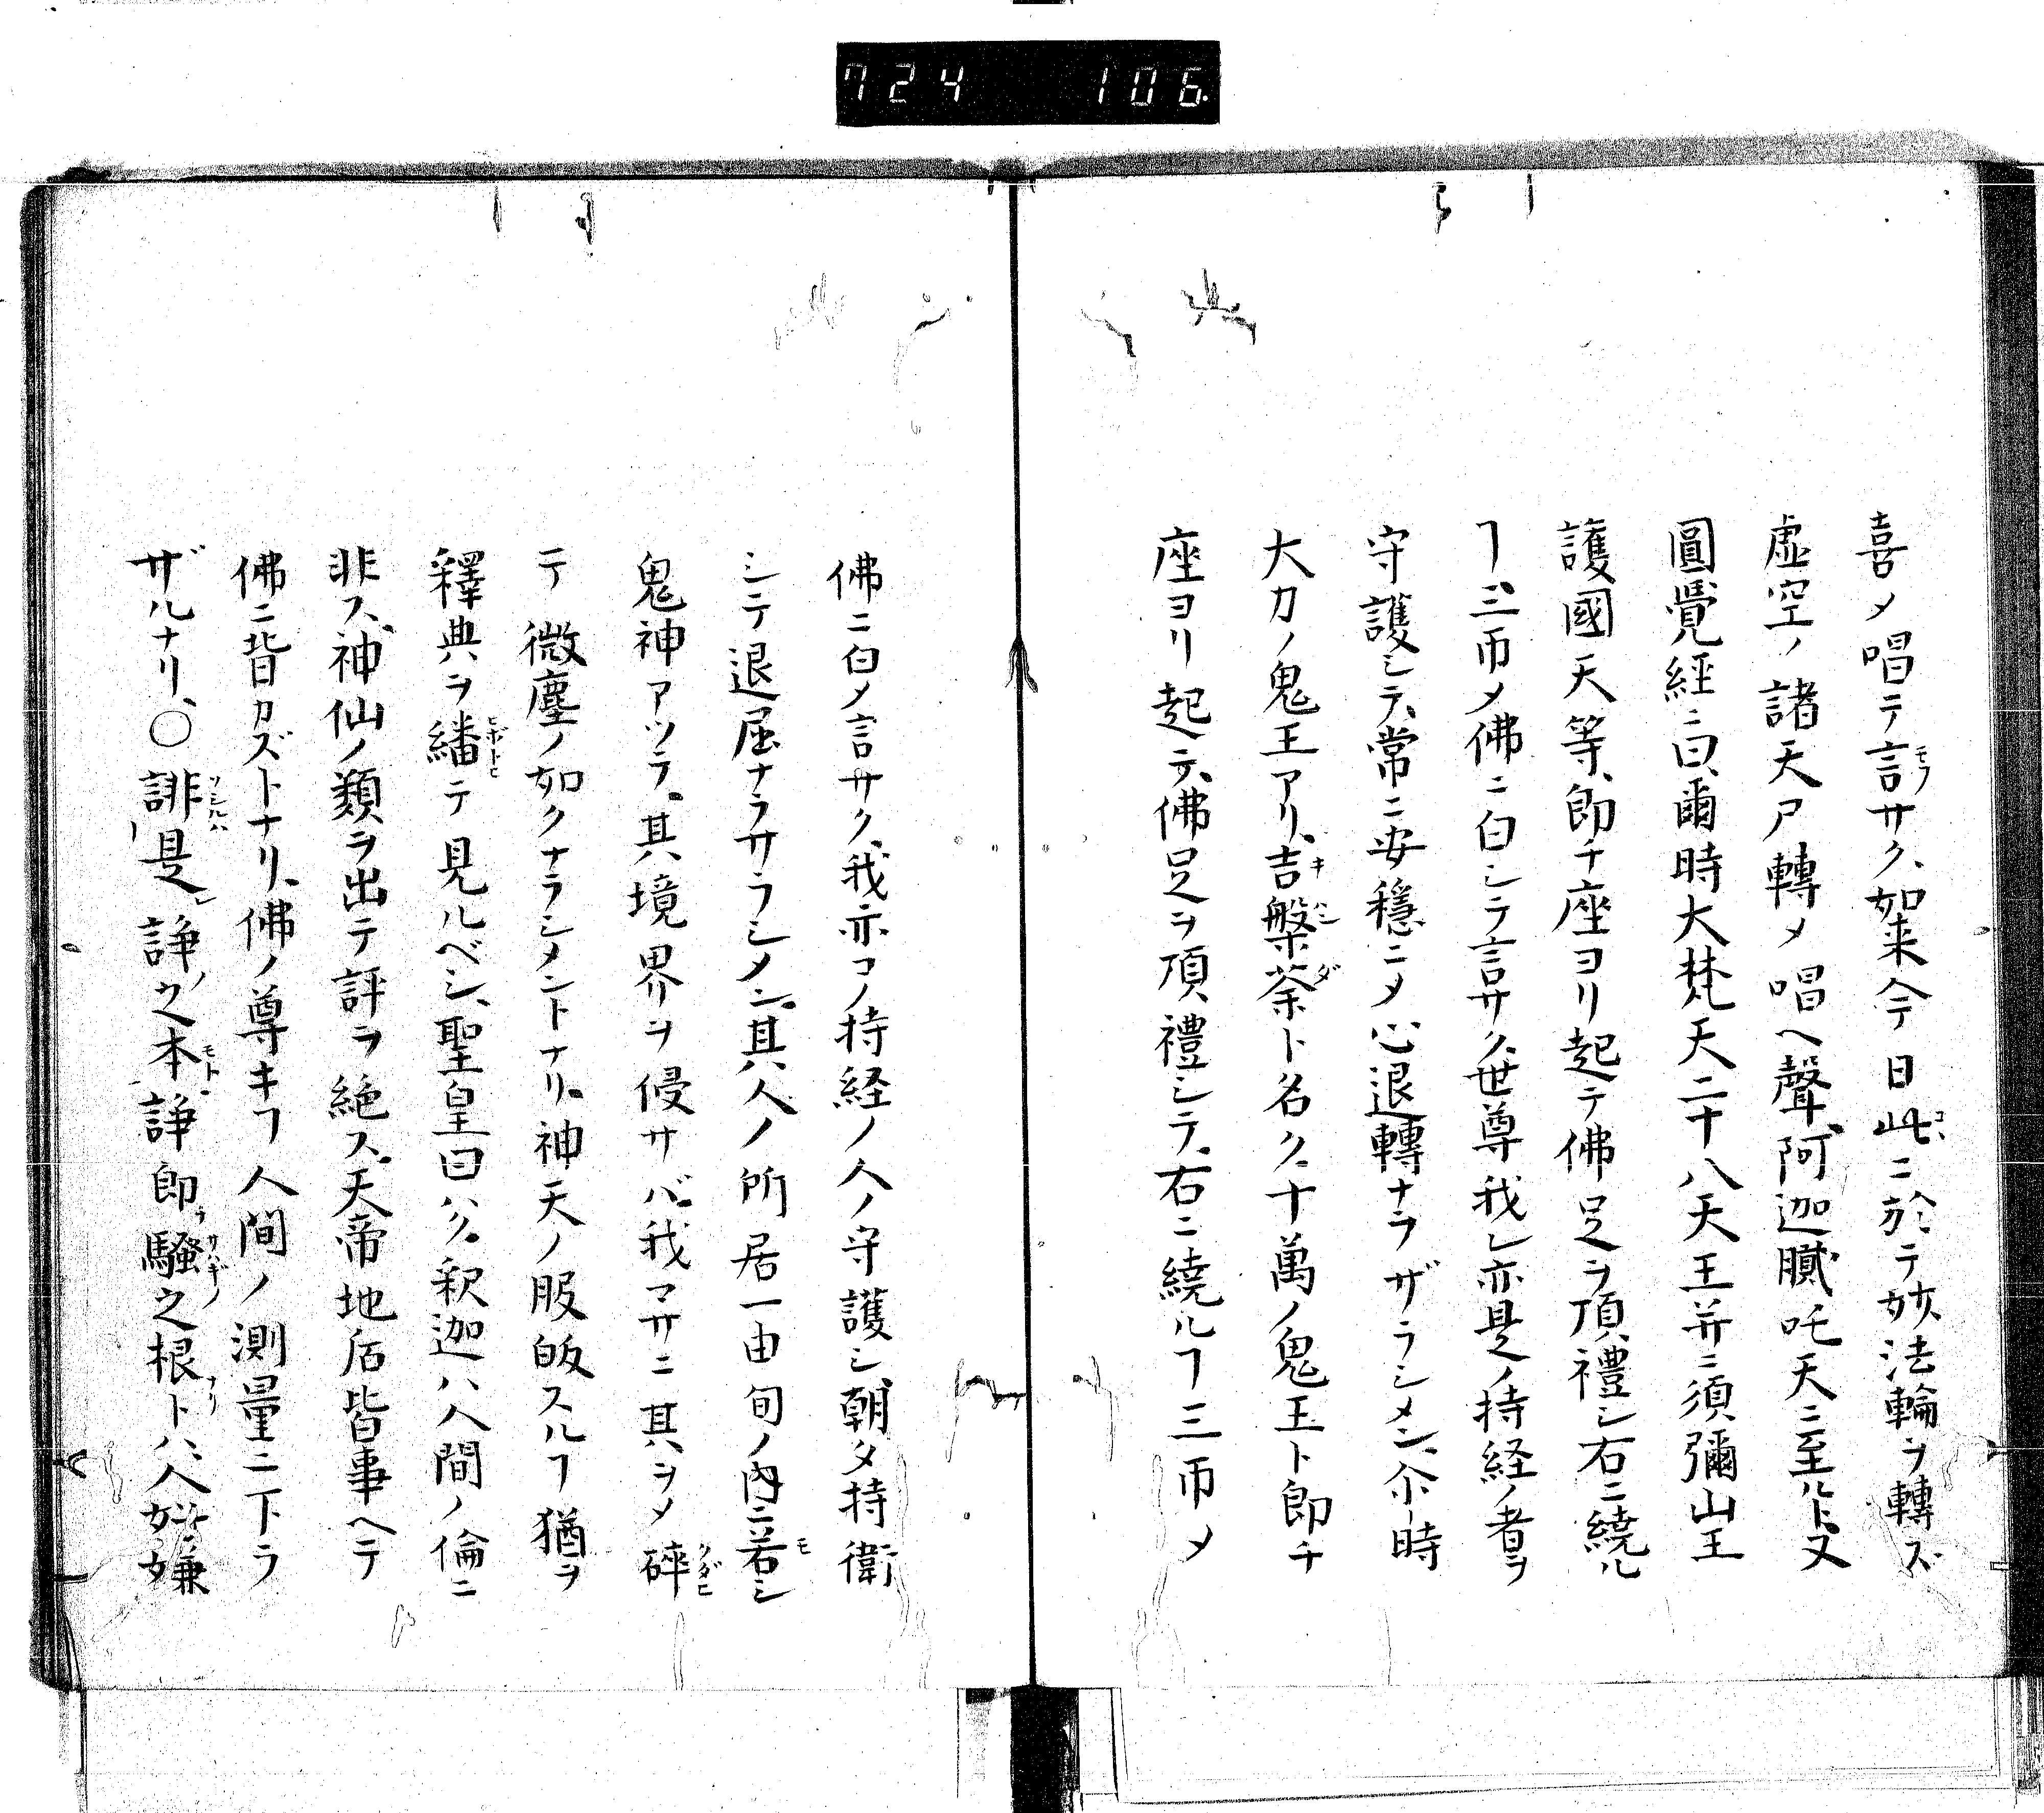 724 106
喜メ唱テ言サク、如来今日此ニ於テ妙法輪ヲ轉ズ
虚空ノ諸天尸轉メ唱ヘ聲、阿迦膩吒天ニ至ルト、又
圓覺經ニ曰、爾時大梵天二十八天王并ニ須彌山王
護國天等、即チ座ヨリ起テ佛足ヲ頂禮シ右ニ繞ル
ヿ、三帀メ佛ニ白シテ言サク、世尊我レ亦是ノ持経ノ者ヲ
守護シテ、常ニ安穏ニメ心退轉ナラザラシメン、尒時
大力ノ鬼王アリ、吉槃荼ト名ク、十萬ノ鬼王ト即チ
座ヨリ起テ、佛足ヲ頂禮シテ、右ニ繞ルヿ三帀メ
佛ニ白メ言サク、我亦コノ持経ノ人ノ守護シ、朝夕持衛
シテ退屈ナラサラシメン、其人ノ所居一由旬ノ内ニ若シ
鬼神アツテ、其境界ヲ侵サバ、我マサニ其ヲメ碎
テ微塵ノ如クナラシメントナリ、神天ノ服皈スルヿ猶ヲ
釋典ヲ繙テ見ルベシ、聖皇曰ハク、釈迦ハ人間ノ倫ニ
非ス、神仙ノ類ヲ出テ評ヲ絶ス、天帝地后皆事ヘテ
佛ニ皆カズトナリ、佛ノ尊キヿ人間ノ測量ニ下ラ
ザルナリ、〇誹是レ諍ノ之本、諍即騒之根トハ、人嫌